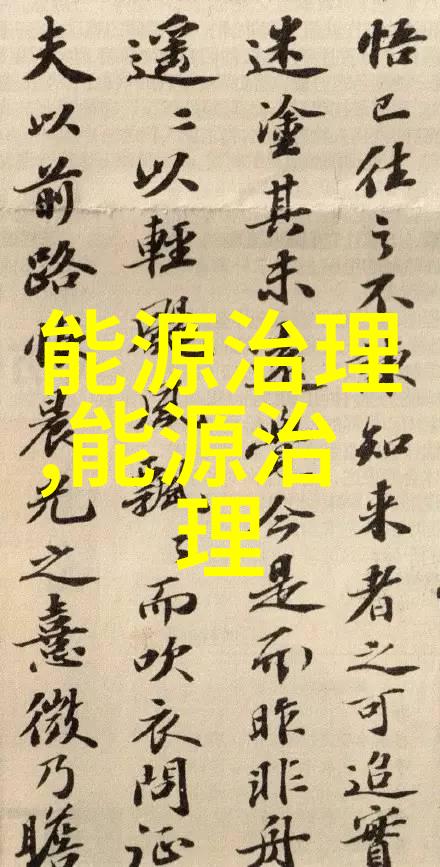 悟已往之不諫知来者之可追實
迷塗其未遠覺今是而昨非舟
遥〻以輕颺風飄〻而吹衣問征
夫以前路恨晨光之熹微乃瞻
能源治理
,能源治
理